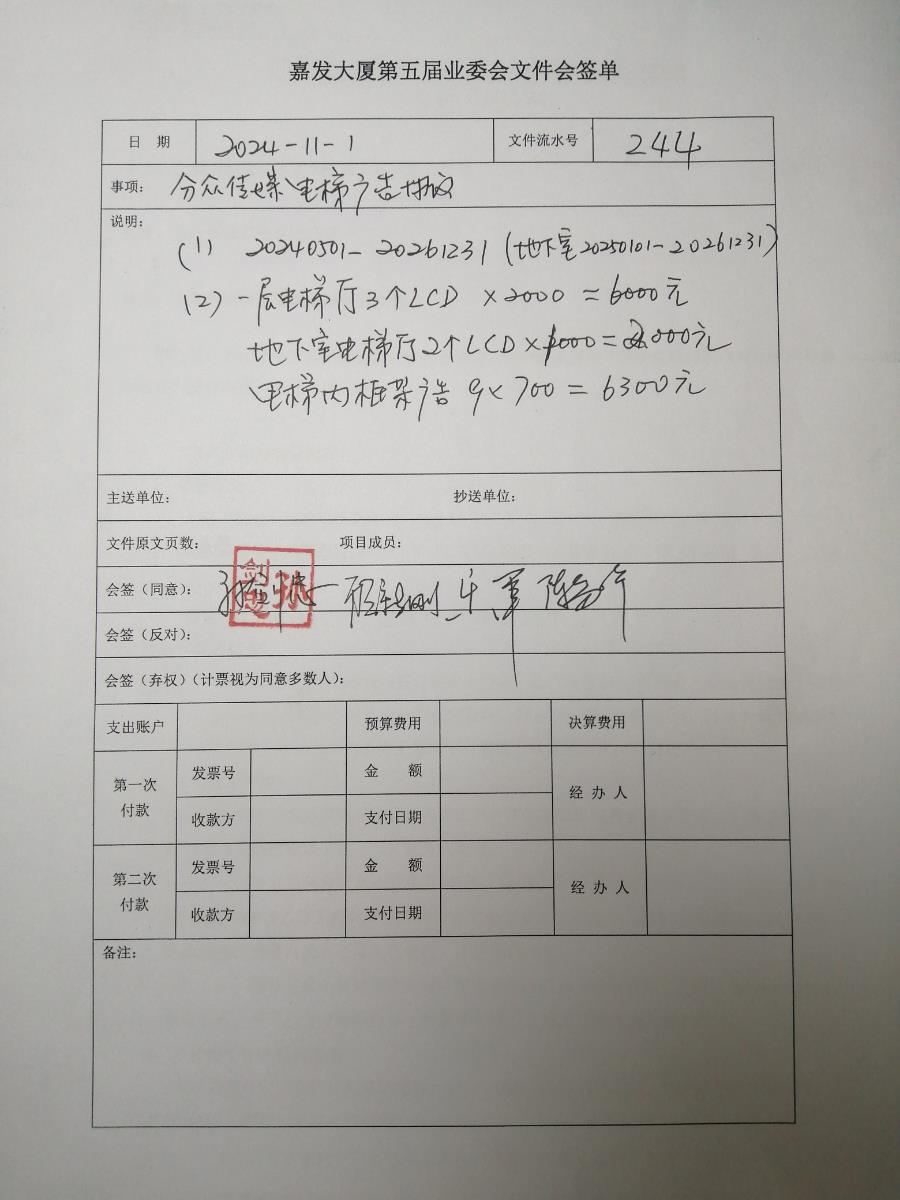 嘉发大厦第五届业委会文件会签单
日 期 2024-11-1 文件流水号 244
事项： 分众传媒电梯广告协议
说明：
(1) 20240501-20261231 (地下室20250101-20261231)
(2) 一层电梯厅3个LCD ×2000 = 6000元
地下室电梯厅2个LCD×1000=2000元
电梯内框架广告 9×700 = 6300元
主送单位： 抄送单位：
文件原文页数： 项目成员：
会签（同意）：
会签（反对）：
会签（弃权）（计票视为同意多数人）：
支出账户 预算费用 决算费用
第一次付款 发票号 金 额 经 办 人
收款方 支付日期
第二次付款 发票号 金 额 经 办 人
收款方 支付日期
备注：